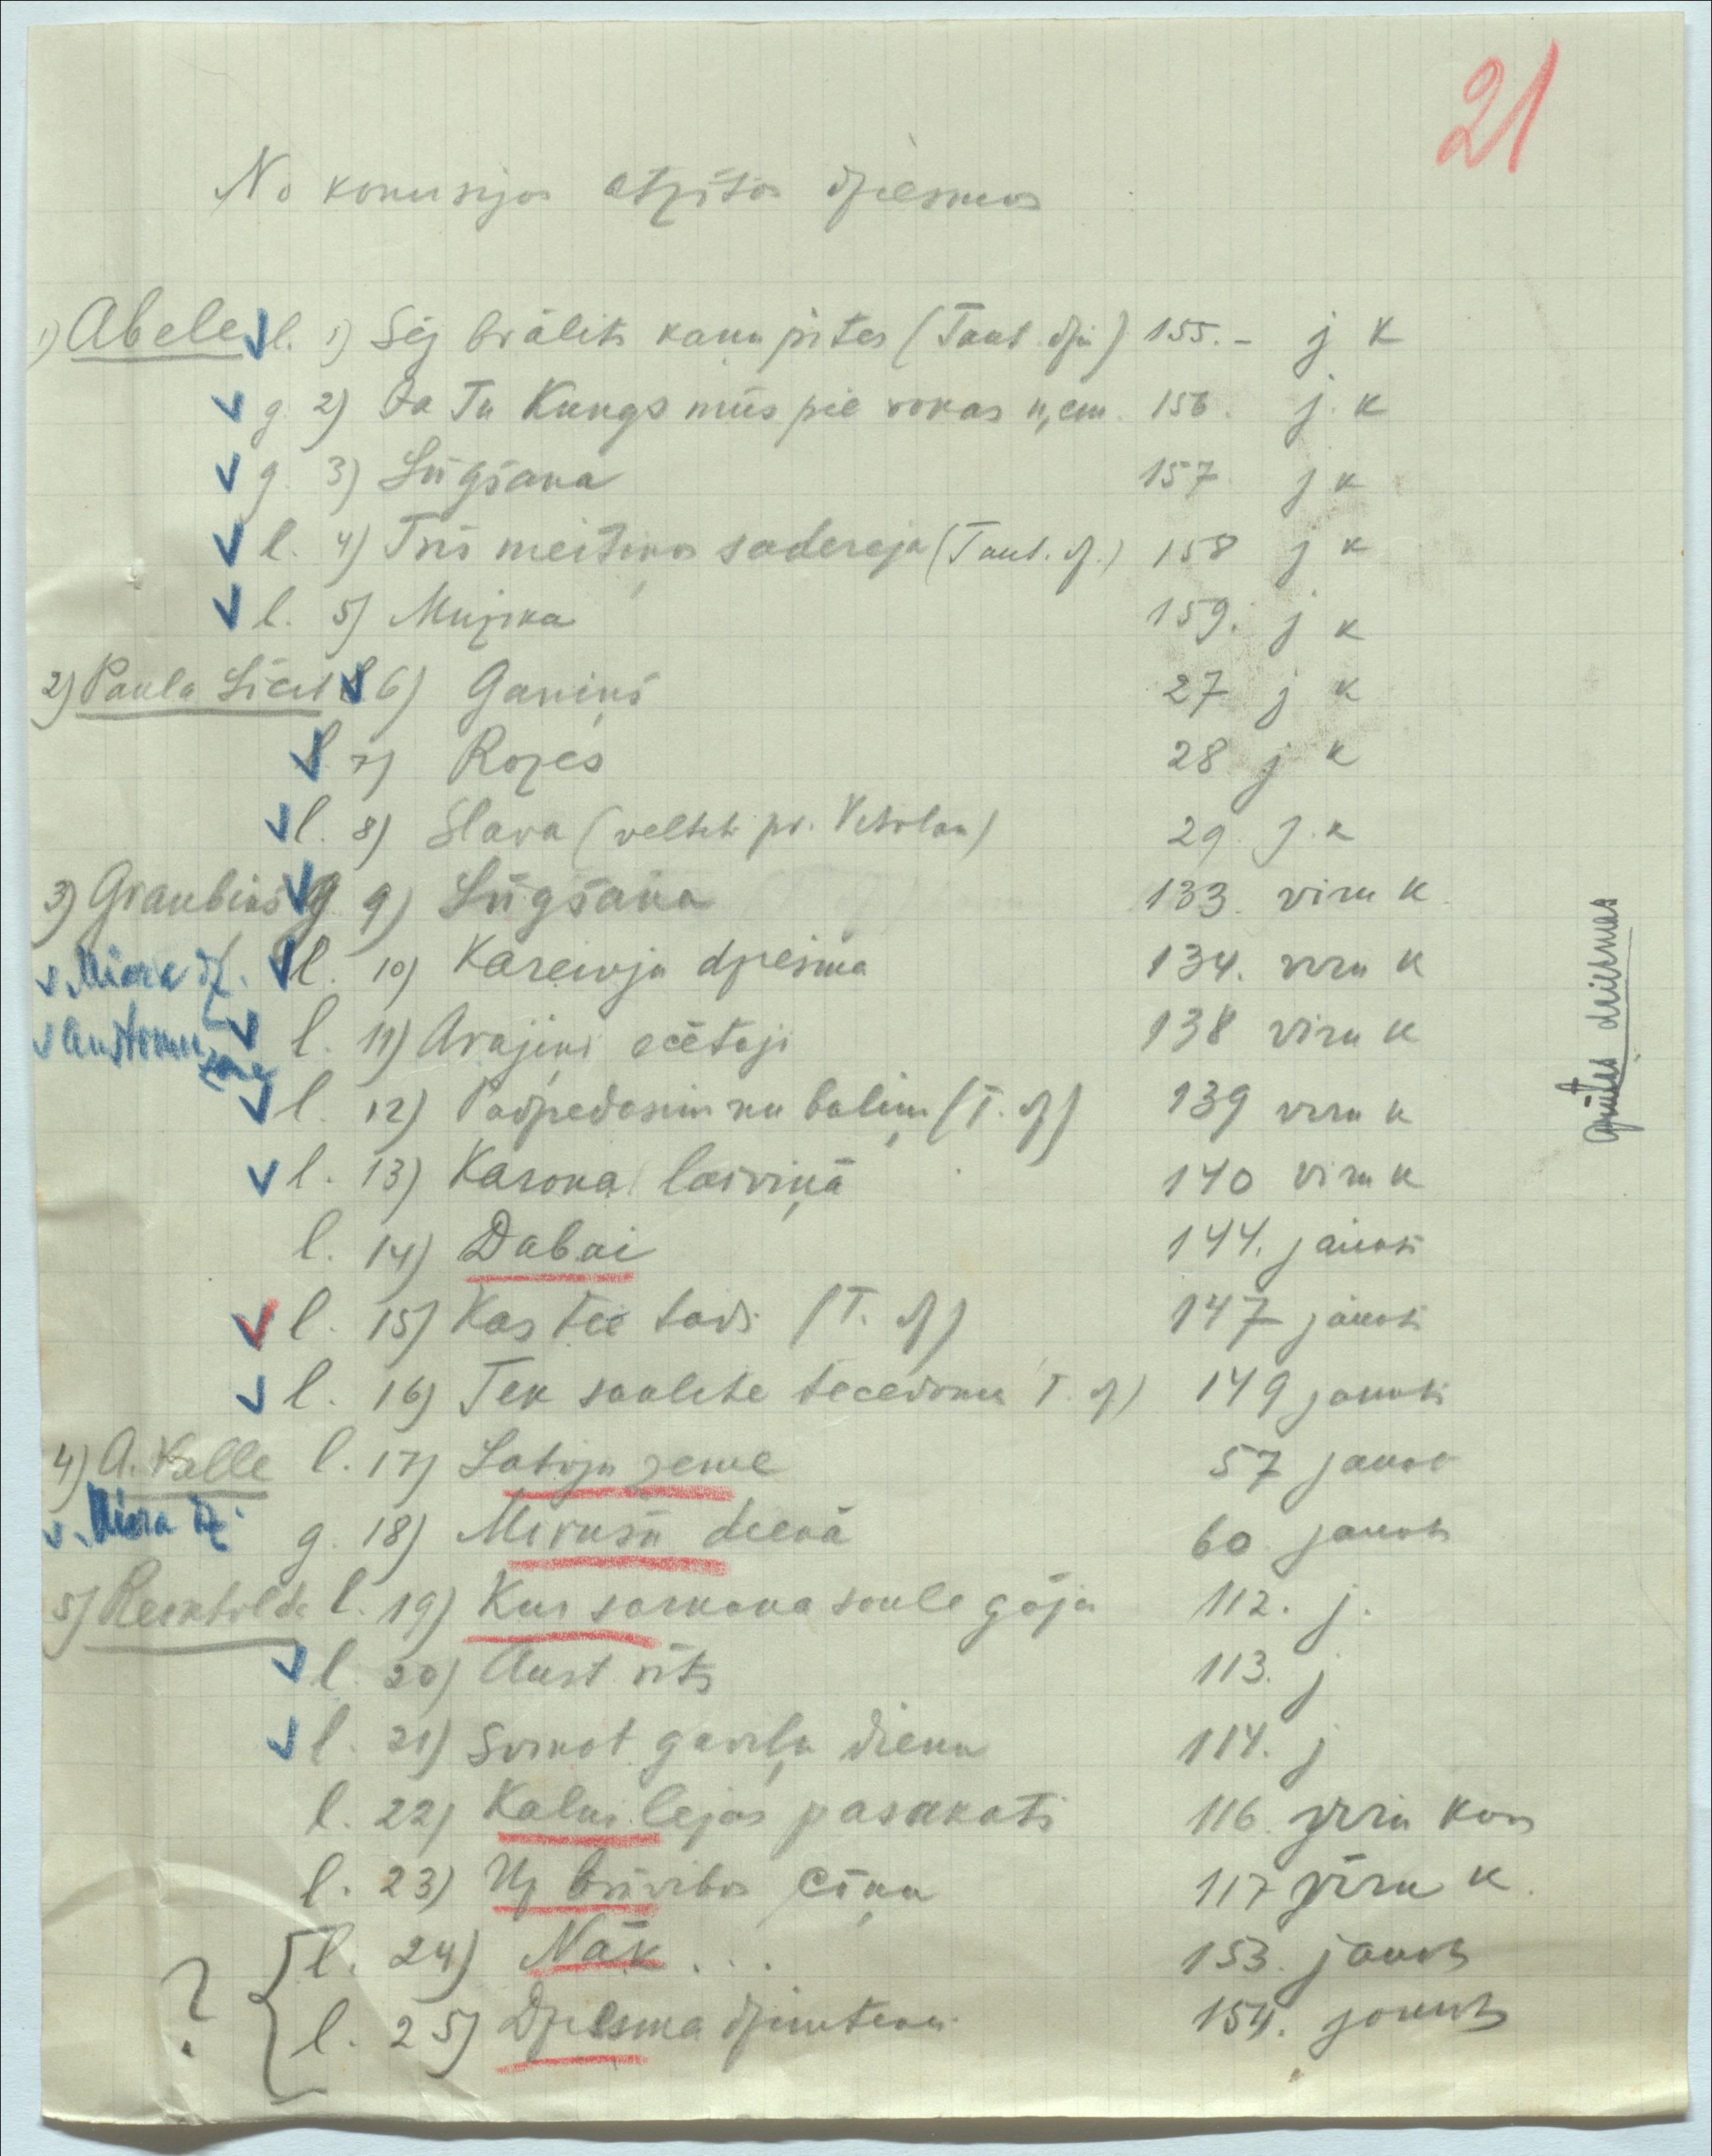 21
No komisijas atzītās dziesmas
1) Abele l. 1) Sēj brālīts kaņupītes (Taut. dz.) 155. - j k
g. 2) Ja Tu Kungs mūs pie rokas ņem. 156. j. k
g. 3) Lūgšana 157 j k
l. 4) Trīs meitiņas saderēja (Taut. dz.) 158 j k
l. 5) Muzika 159. j k
2) Paula Līcīt l 6) Ganiņš 27 j k
l. 7) Rozes 28 j k
l. 8) Slava (veltīt. pr. Vītolam) 29. j. k
3) Graubiņš g 9) Lūgšana 133. vīru k.
Miera dz. l. 10) Kareivju dziesma 134. vīru k
l. 11) Arājiņi ecētāji 138 vīru k
l. 12) Padziedāsim nu baliņi (T. dz) 139 vīru k
l. 13) Karoga laiviņā 140 vīru k
l. 14) Dabai 144. jaukti
l. 15) Kas tie tādi (T. dz) 147 jaukti
l. 16) Tek saulīte tecēdama T. dz) 149 jaukti
4) A. Kalle l. 17) Latvju zeme 57 jaukt
Miera dz. g. 18) Mirušu dienā 60. jaukts
5) Reinholde l. 19) Kur sarkana saule gāja 112. j.
l. 20) Aust rīts 113. j
l. 21) Svinot gaviļu dienu 114. j
l. 22) Kalni lejas pasakati 116. vīru kor
l. 23) Uz brīvības cīņu 117 vīru k.
? l. 24) Nāk . . . 153. jaukts
l. 25) Dziesma dzimtenei 154. jaukts